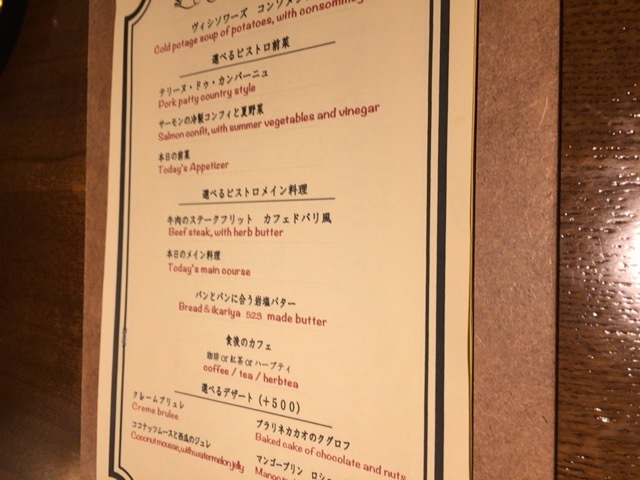 ヴィシソワーズ コンソメ
Cold potage soup of potatoes, with consommé
選べるビストロ前菜
テリーヌ・ドゥ・カンパーニュ
Pork patty country style
サーモンの冷製コンフィと夏野菜
Salmon confit, with summer vegetables and vinegar
本日の前菜
Today's Appetizer
選べるビストロメイン料理
牛肉のステークフリット カフェドパリ風
Beef steak, with herb butter
本日のメイン料理
Today's main course
パンとパンに合う岩塩バター
Bread & ikariya 523 made butter
食後のカフェ
珈琲 or 紅茶 or ハーブティ
coffee / tea / herbtea
選べるデザート (+500)
クレームブリュレ
Creme brulee
ココナッツムースと西瓜のジュレ
Coconut mousse, with watermelon jelly
プラリネカカオのクグロフ
Baked cake of chocolate and nuts
マンゴープリン